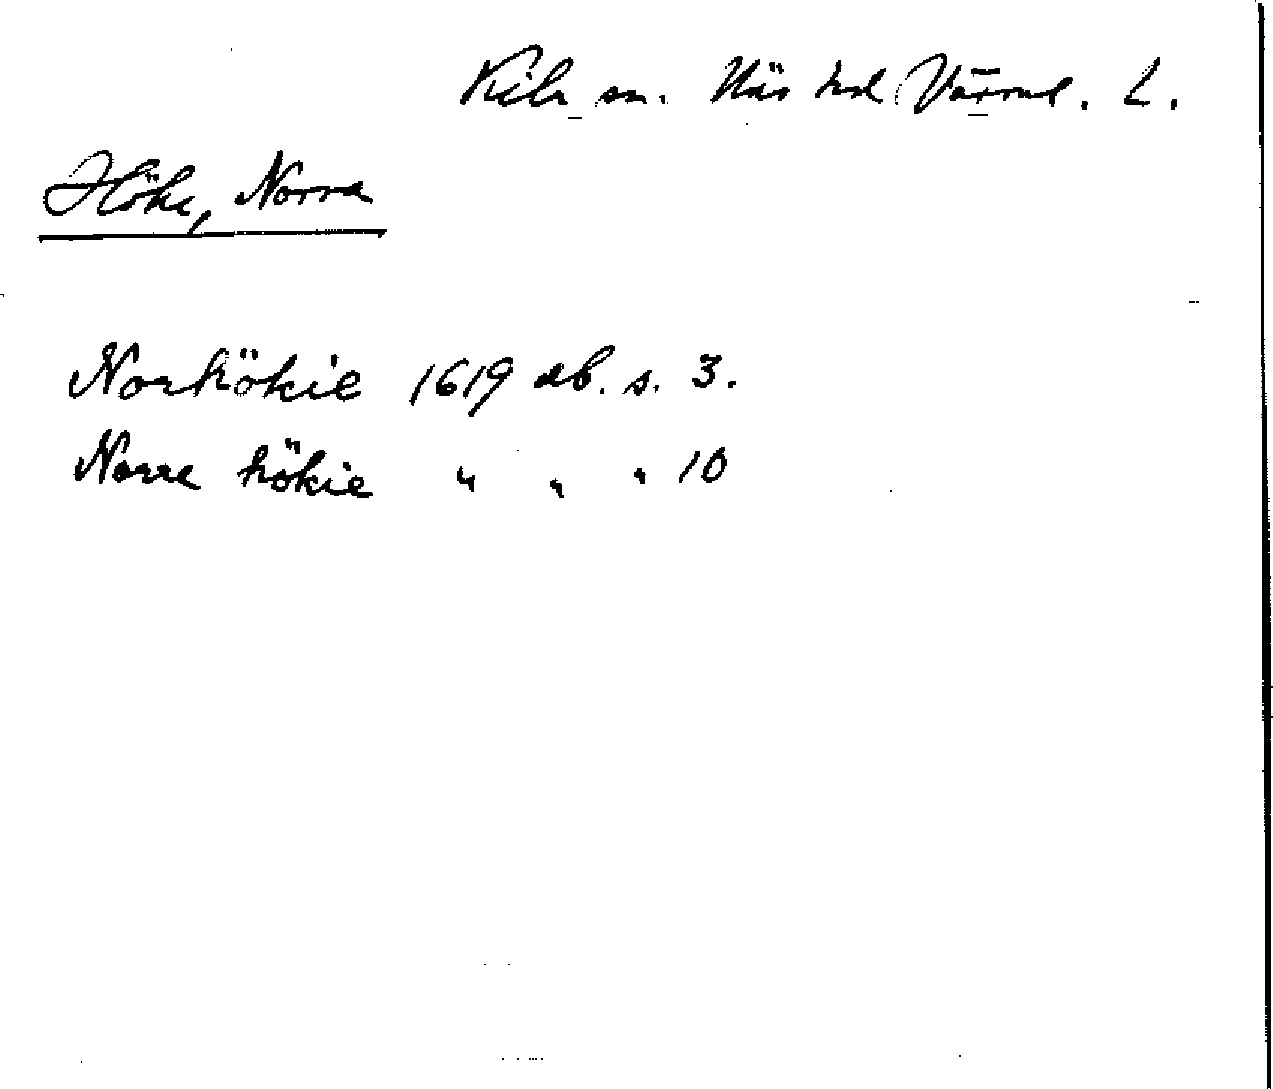 Kils sn. Näs hd Värml. L.
Höke, Norra
Norhökie 1619 db. s. 3.
Norre hökie " " " 10